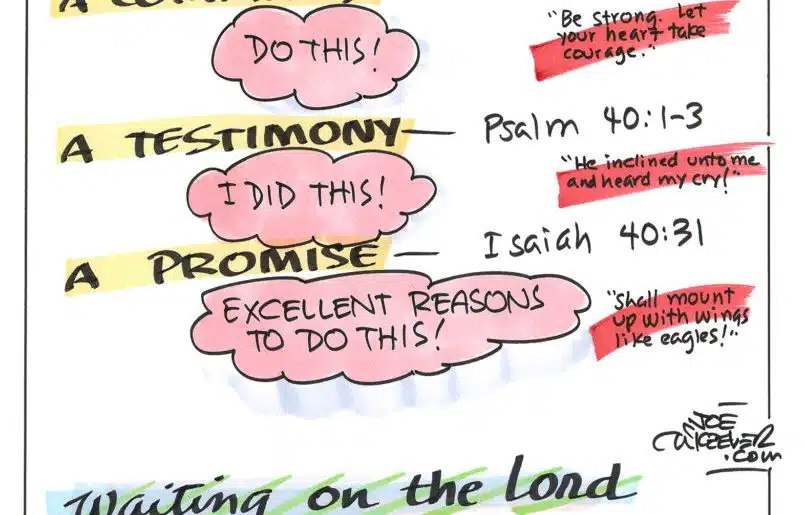 A
DO THIS!
"Be strong. Let
your heart take
courage."
A TESTIMONY — Psalm 40:1-3
I DID THIS!
"He inclined unto me
and heard my cry!"
A PROMISE — Isaiah 40:31
EXCELLENT REASONS
TO DO THIS!
"Shall mount
up with wings
like eagles!"
JOE
MCKEEVER
.com
Waiting on the Lord